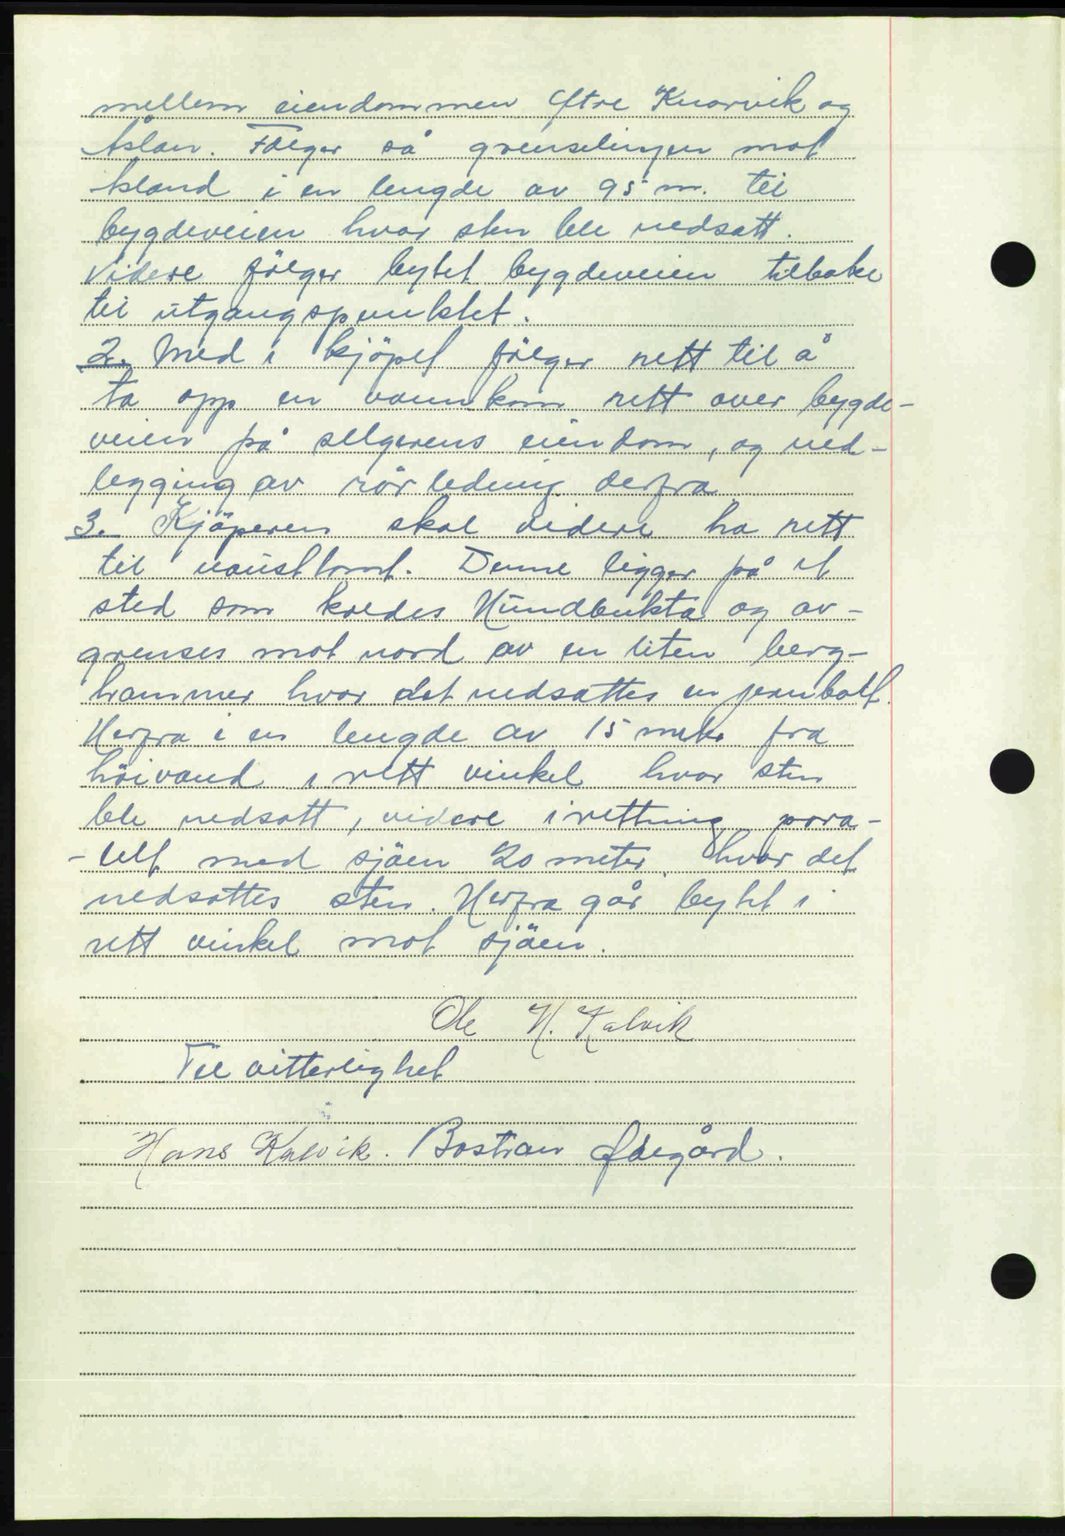 mellem eiendommen Øtre Knarvik og
Åslan. Fölger så grenselinjen mot
Åsland i en lengde av 95 m. til
bygdeveien hvor sten ble nedsatt.
Videre fölger bytet bygdeveien tilbake
til utgangspunktet.
2. Med i kjöpet fölger rett til å
ta opp en vannkom rett over bygde-
veien på selgerens eiendom, og ned-
legging av rörledning derfra
3. Kjöperen skal videre ha rett
til nausttomt. Denne ligger på et
sted som koldes Hundbukta og av-
grenses mot nord av en liten berg-
hammer hvor det nedsattes en jernbolt.
Herfra i en lengde av 15 meter fra
höivand i rett vinkel hvor sten
ble nedsatt, videre i retning para-
-lelt med sjöen 20 meter hvor det
nedsattes sten. Herfra går bytet i
rett vinkel mot sjöen.
Ole H. Kalvik
Til vitterlighet
Hans Kalvik. Bastian Ødegård.